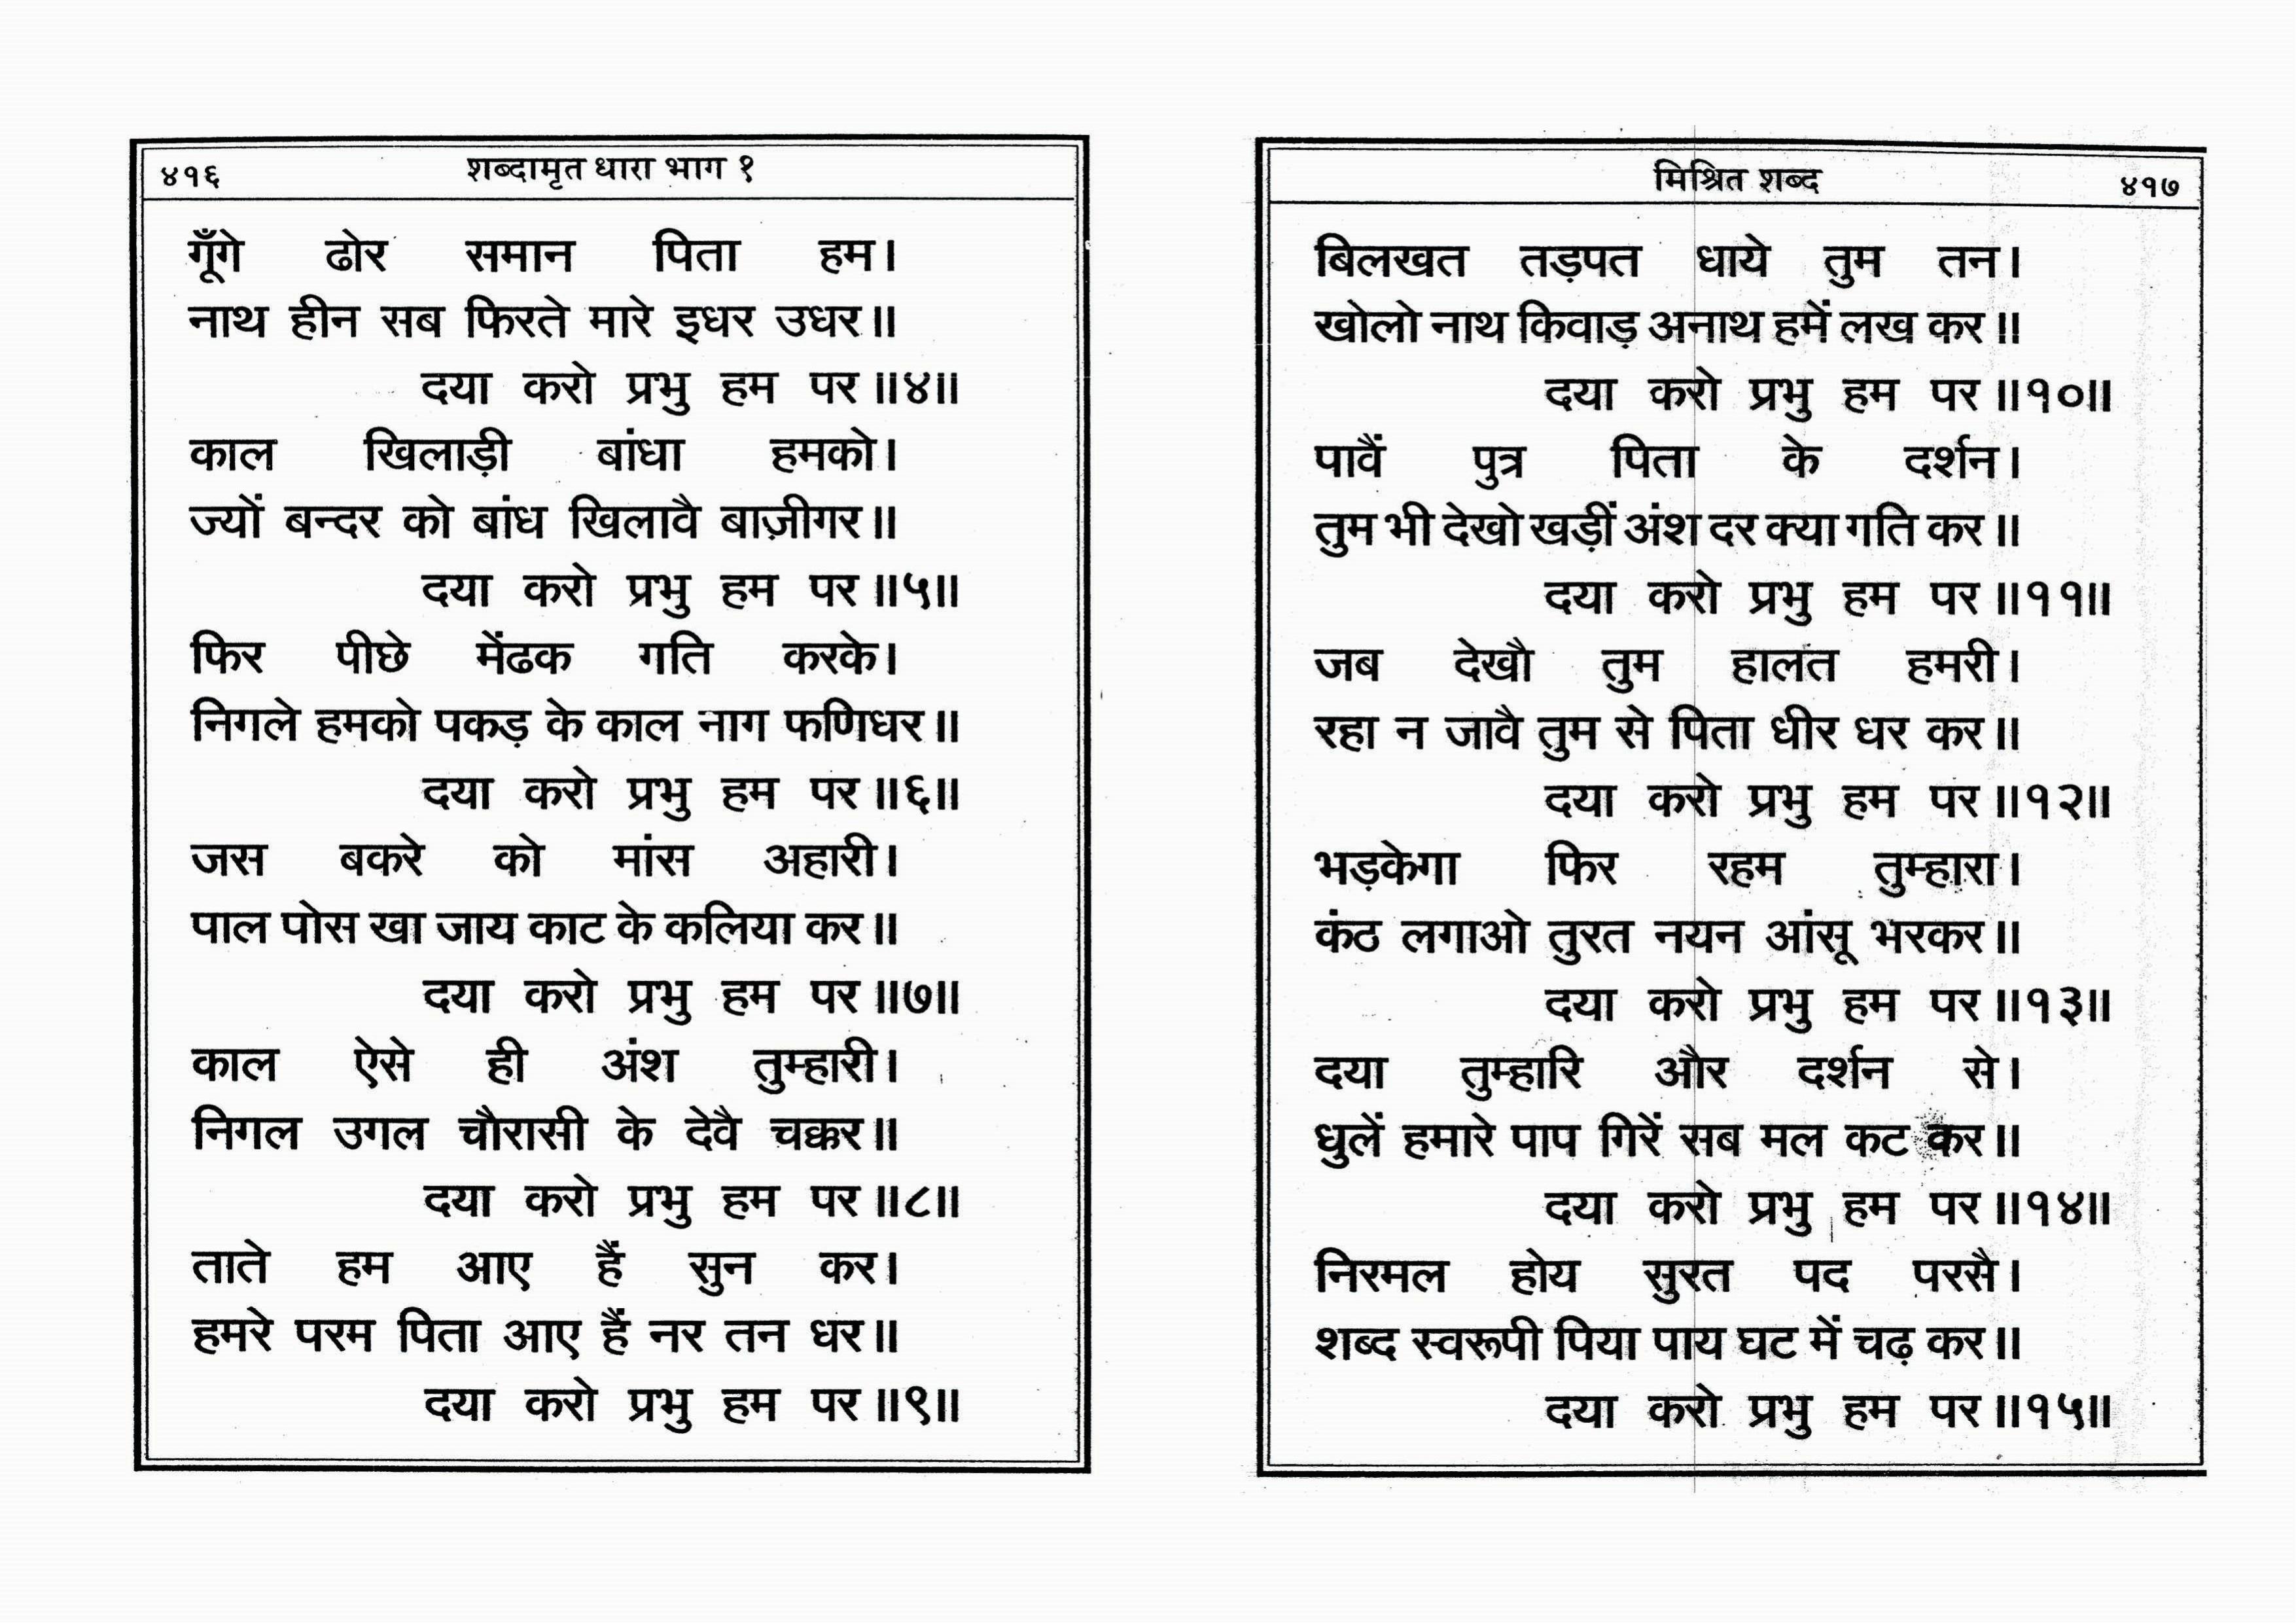 ४१६ शब्दामृत धारा भाग १
गूँगे ढोर समान पिता हम।
नाथ हीन सब फिरते मारे इधर उधर॥
दया करो प्रभु हम पर॥४॥
काल खिलाड़ी बांधा हमको।
ज्यों बन्दर को बांध खिलावै बाज़ीगर॥
दया करो प्रभु हम पर॥५॥
फिर पीछे मेंढक गति करके।
निगले हमको पकड़ के काल नाग फणिधर॥
दया करो प्रभु हम पर॥६॥
जस बकरे को मांस अहारी।
पाल पोस खा जाय काट के कलिया कर॥
दया करो प्रभु हम पर॥७॥
काल ऐसे ही अंश तुम्हारी।
निगल उगल चौरासी के देवै चक्कर॥
दया करो प्रभु हम पर॥८॥
ताते हम आए हैं सुन कर।
हमरे परम पिता आए हैं नर तन धर॥
दया करो प्रभु हम पर॥९॥
मिश्रित शब्द ४१७
बिलखत तड़पत धाये तुम तन।
खोलो नाथ किवाड़ अनाथ हमें लख कर॥
दया करो प्रभु हम पर॥१०॥
पावैं पुत्र पिता के दर्शन।
तुम भी देखो खड़ीं अंश दर क्या गति कर॥
दया करो प्रभु हम पर॥११॥
जब देखौ तुम हालत हमरी।
रहा न जावै तुम से पिता धीर धर कर॥
दया करो प्रभु हम पर॥१२॥
भड़केगा फिर रहम तुम्हारा।
कंठ लगाओ तुरत नयन आंसू भरकर॥
दया करो प्रभु हम पर॥१३॥
दया तुम्हारि और दर्शन से।
धुलें हमारे पाप गिरें सब मल कट कर॥
दया करो प्रभु हम पर॥१४॥
निरमल होय सुरत पद परसै।
शब्द स्वरूपी पिया पाय घट में चढ़ कर॥
दया करो प्रभु हम पर॥१५॥